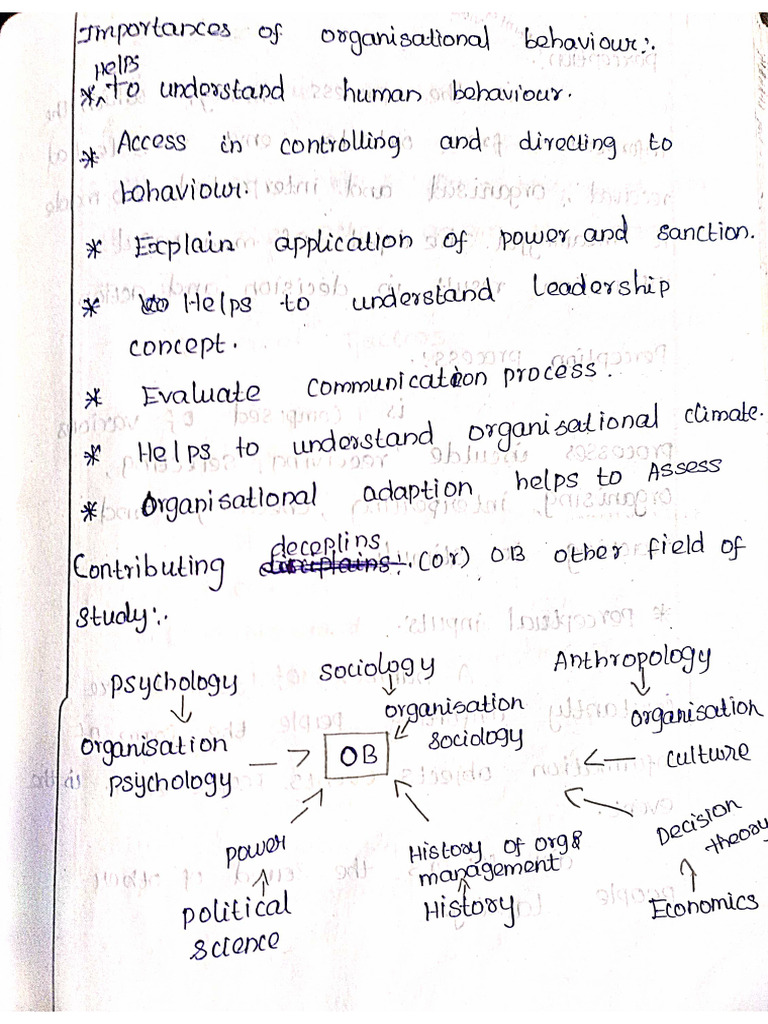 Importances of organisational behaviour:.
Helps
* ^ to understand human behaviour.
* Access in controlling and directing to
bohaviour.
* Explain application of power and sanction.
* Helps to understand leadership
concept.
* Evaluate communication process.
* Helps to understand organisational climate.
* Organisational adaption helps to Assess
deceplins
Contributing (or) OB other field of
study:.
psychology sociology Anthropology
organisation psychology organisation sociology organisation culture
OB
power History of org& management Decision theory
political science History Economics